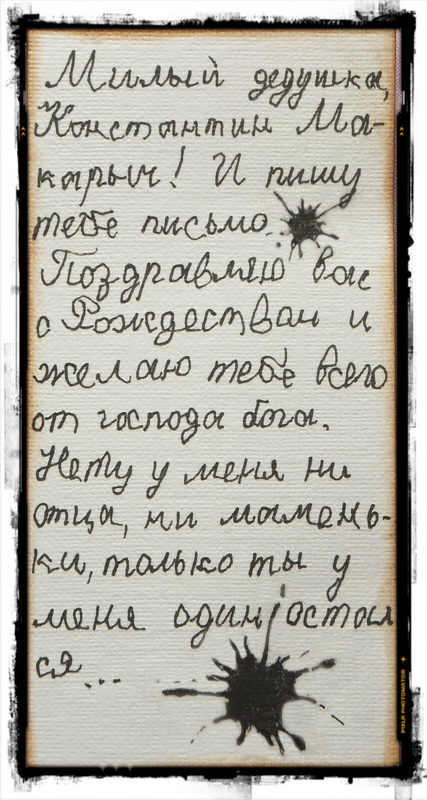 Милый дедушка,
Константин Ма-
карыч! И пишу
тебе письмо.
Поздравляю вас
с Рождеством и
желаю тебе всего
от господа бога.
Нету у меня ни
отца, ни мамень-
ки, только ты у
меня один остал
ся...
PIXLR PHOTOMATOR